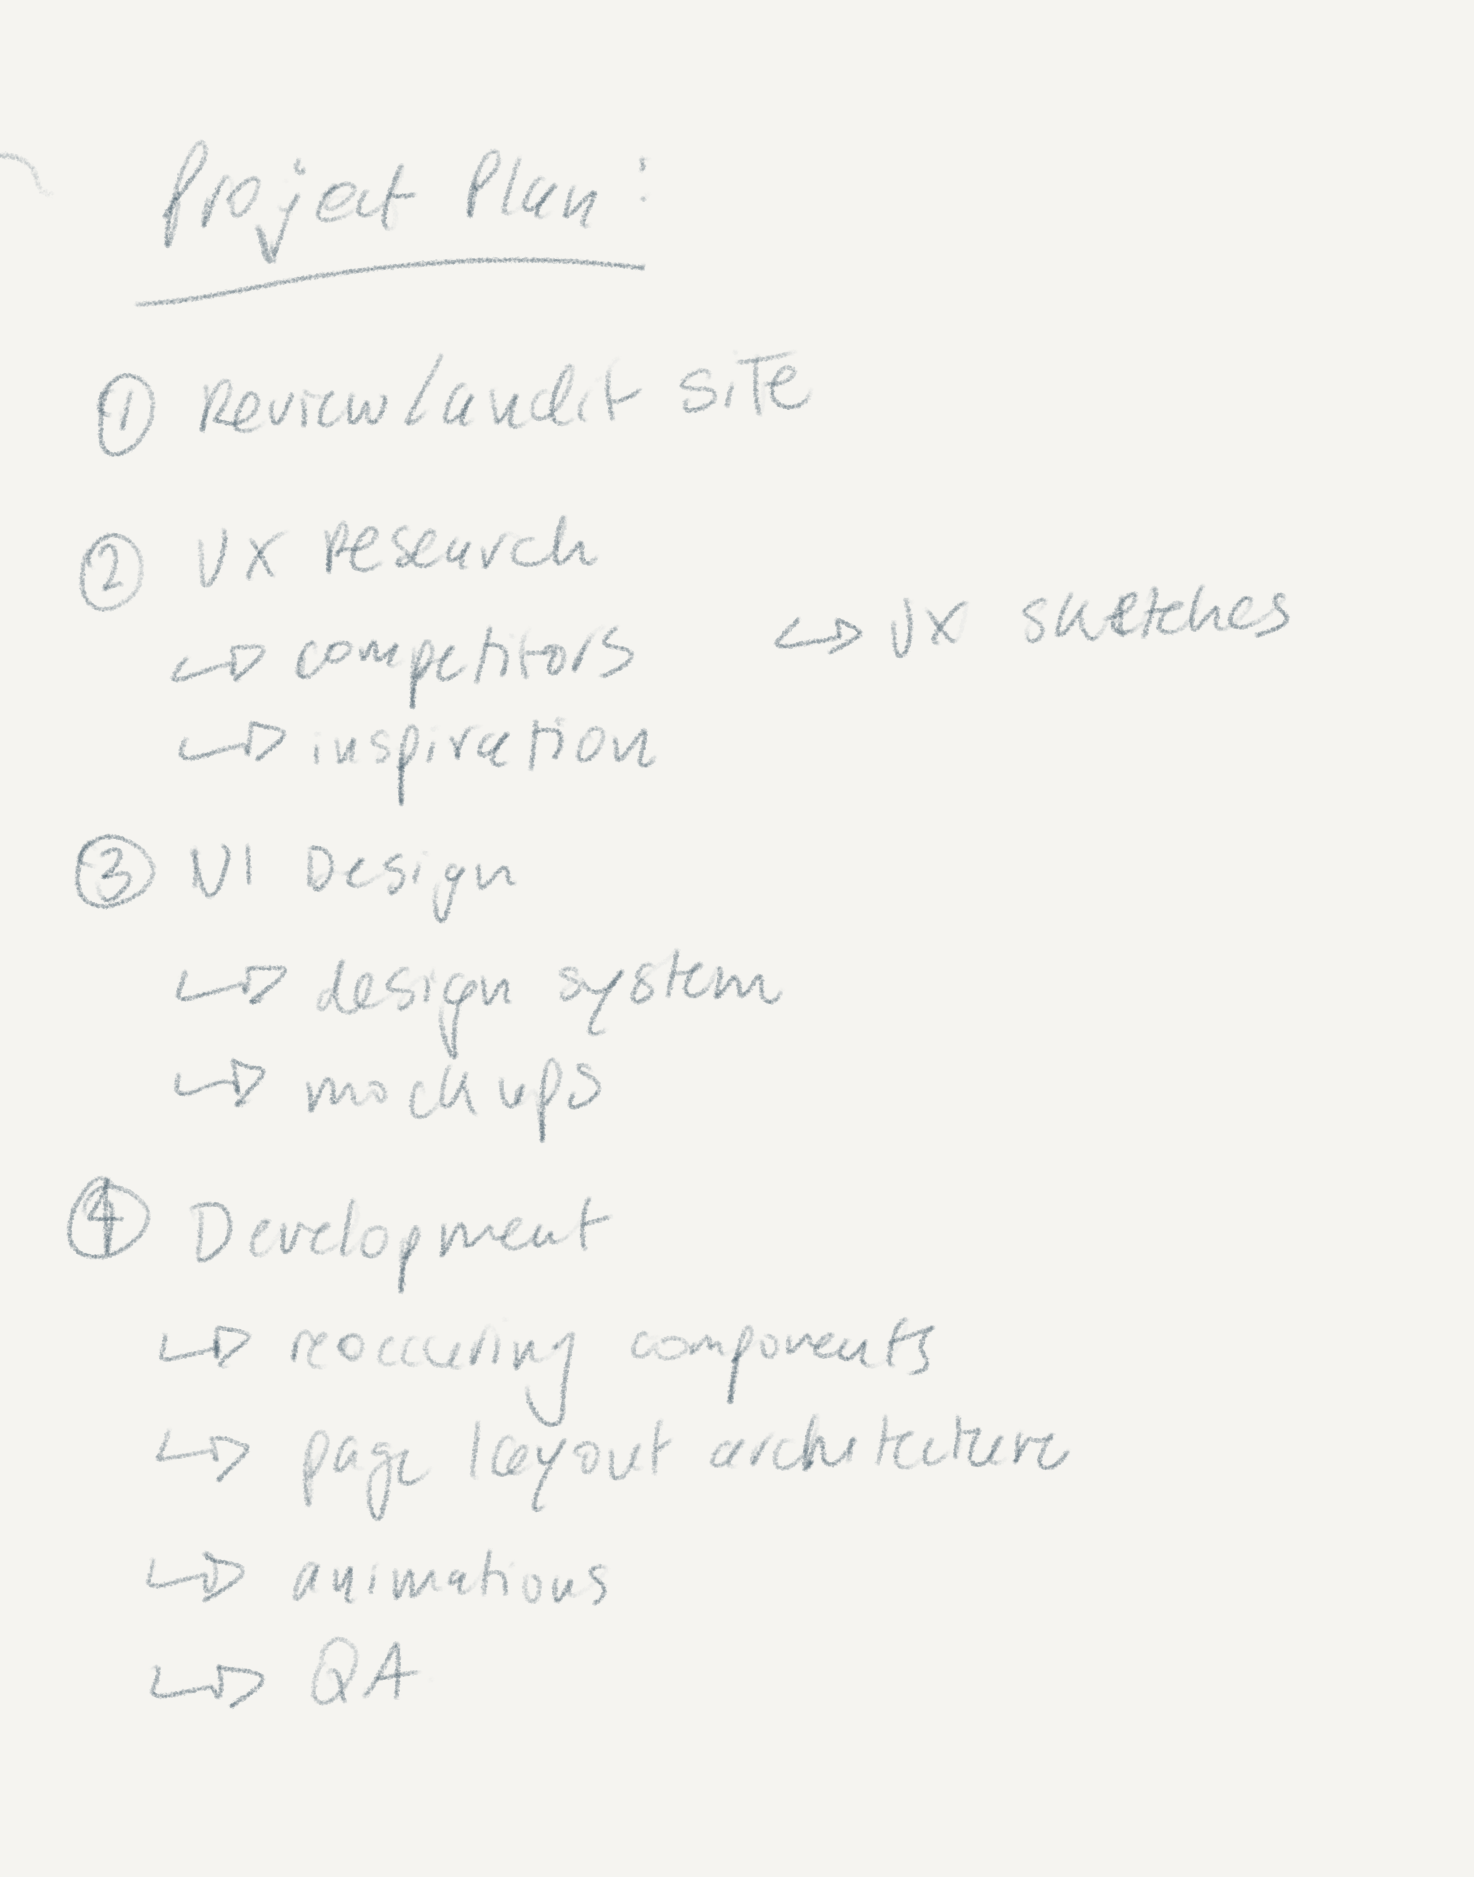 Project Plan:
① Review/audit site
② UX Research
↳ competitors ↳ UX sketches
↳ inspiration
③ UI Design
↳ design system
↳ mockups
④ Development
↳ reoccuring components
↳ page layout architecture
↳ animations
↳ QA